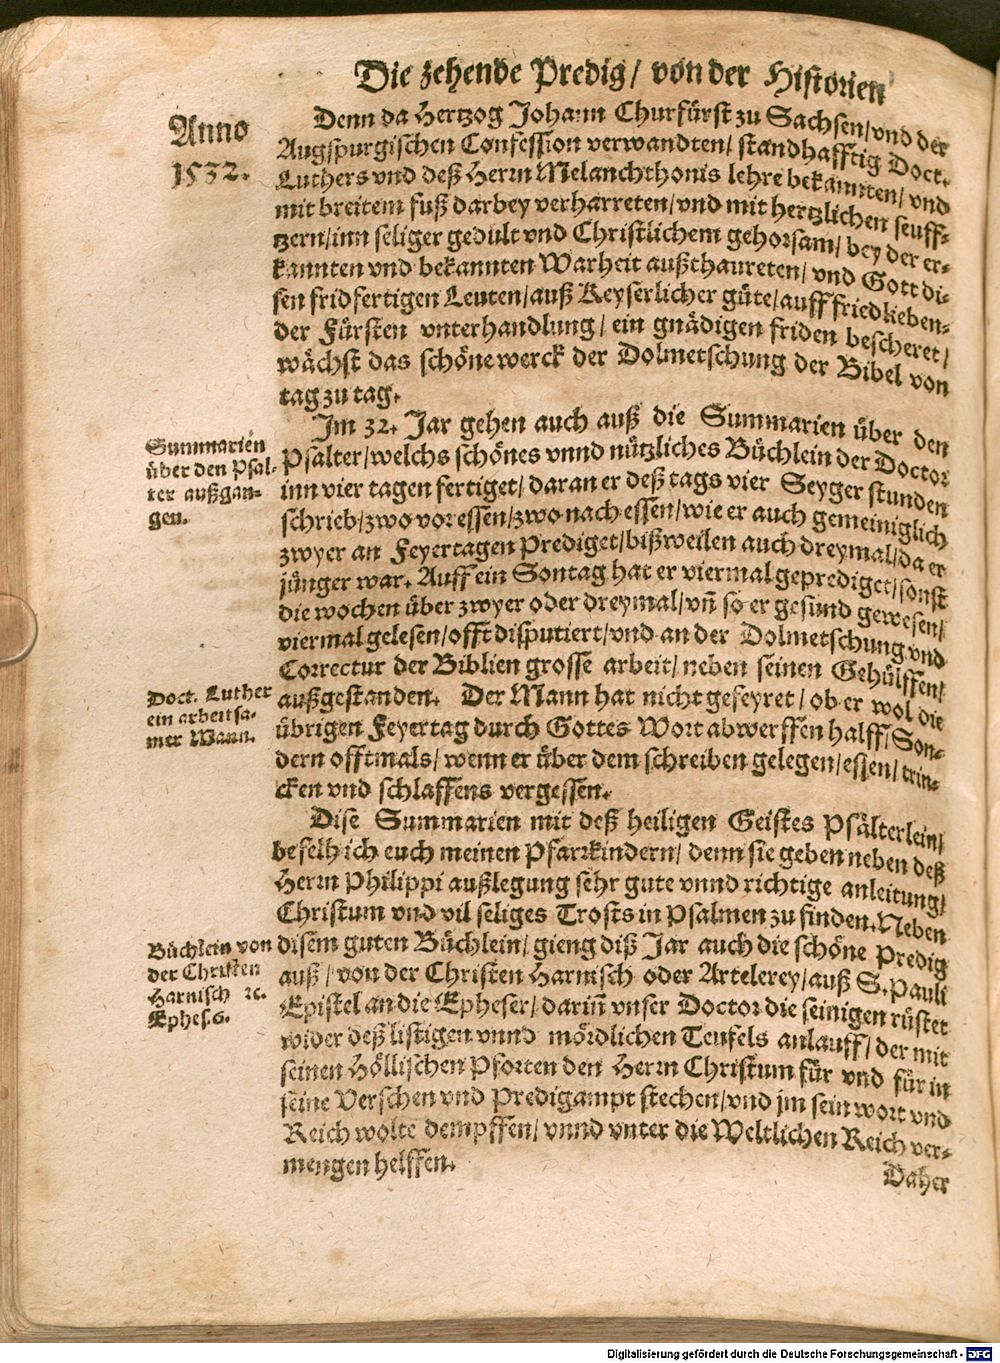 Die zehende Predig / von der Historien
Anno
1532.
Denn da Hertzog Johann Churfürst zu Sachsen / vnd der
Augspurgischen Confession verwandten / standhafftig Doct.
Luthers vnd deß Herrn Melanchthonis lehre bekannten / vnd
mit breitem fuß darbey verharreten / vnd mit hertzlichen seuff-
tzern / inn seliger gedult vnd Christlichem gehorsam / bey der er-
kannten vnd bekannten Warheit außthaureten / vnd Gott di-
sen fridfertigen Leuten / auß Keyserlicher güte / auff friedlieben-
der Fürsten vnterhandlung / ein gnädigen friden bescheret /
wächst das schöne werck der Dolmetschung der Bibel von
tag zu tag.
Summarien
über den Psal-
ter außgan-
gen.
Im 32. Jar gehen auch auß die Summarien über den
Psalter / welchs schönes vnnd nützliches Büchlein der Doctor
inn vier tagen fertiget / daran er deß tags vier Seyger stunden
schrieb / zwo vor essen / zwo nach essen / wie er auch gemeiniglich
zwyer an Feyertagen Prediget / bißweilen auch dreymal / da er
jünger war. Auff ein Sontag hat er viermal geprediget / sonst
die wochen über zwyer oder dreymal / vñ so er gesund gewesen /
viermal gelesen / offt disputiert / vnd an der Dolmetschung vnd
Correctur der Biblien grosse arbeit / neben seinen Gehülffen /
außgestanden. Der Mann hat nicht gefeyret / ob er wol die
übrigen Feyertag durch Gottes Wort abwerffen halff / Son-
dern offtmals / wenn er über dem schreiben gelegen / essen / trin-
cken vnd schlaffens vergessen.
Doct. Luther
ein arbeitsa-
mer Mann.
Dise Summarien mit deß heiligen Geistes Psälterlein /
befelh ich euch meinen Pfarrkindern / denn sie geben neben deß
Herrn Philippi außlegung sehr gute vnnd richtige anleitung /
Christum vnd vil seliges Trosts in Psalmen zu finden. Neben
disem guten Büchlein / gieng diß Jar auch die schöne Predig
auß / von der Christen Harnisch oder Artelerey / auß S. Pauli
Epistel an die Epheser / dariñ vnser Doctor die seinigen rüstet
wider deß listigen vnnd mördlichen Teufels anlauff / der mit
seinen Höllischen Pforten den Herrn Christum für vnd für in
seine Verschen vnd Predigampt stechen / vnd jm sein wort vnd
Reich wolte dempffen / vnnd vnter die Weltlichen Reich ver-
mengen helffen.
Büchlein von
der Christen
Harnisch ꝛc.
Ephes. 6.
Daher
Digitalisierung gefördert durch die Deutsche Forschungsgemeinschaft - DFG